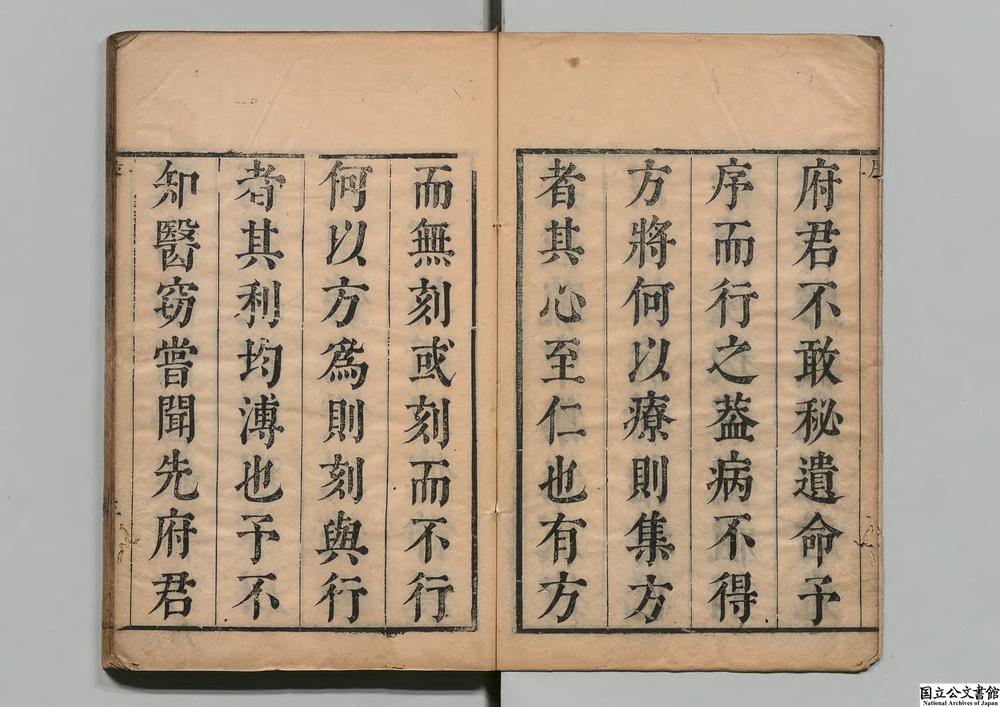 府君不敢秘遺命予
序而行之葢病不得
方將何以療則集方
者其心至仁也有方
而無刻或刻而不行
何以方爲則刻與行
者其利均溥也予不
知醫窃嘗聞先府君
国立公文書館
National Archives of Japan